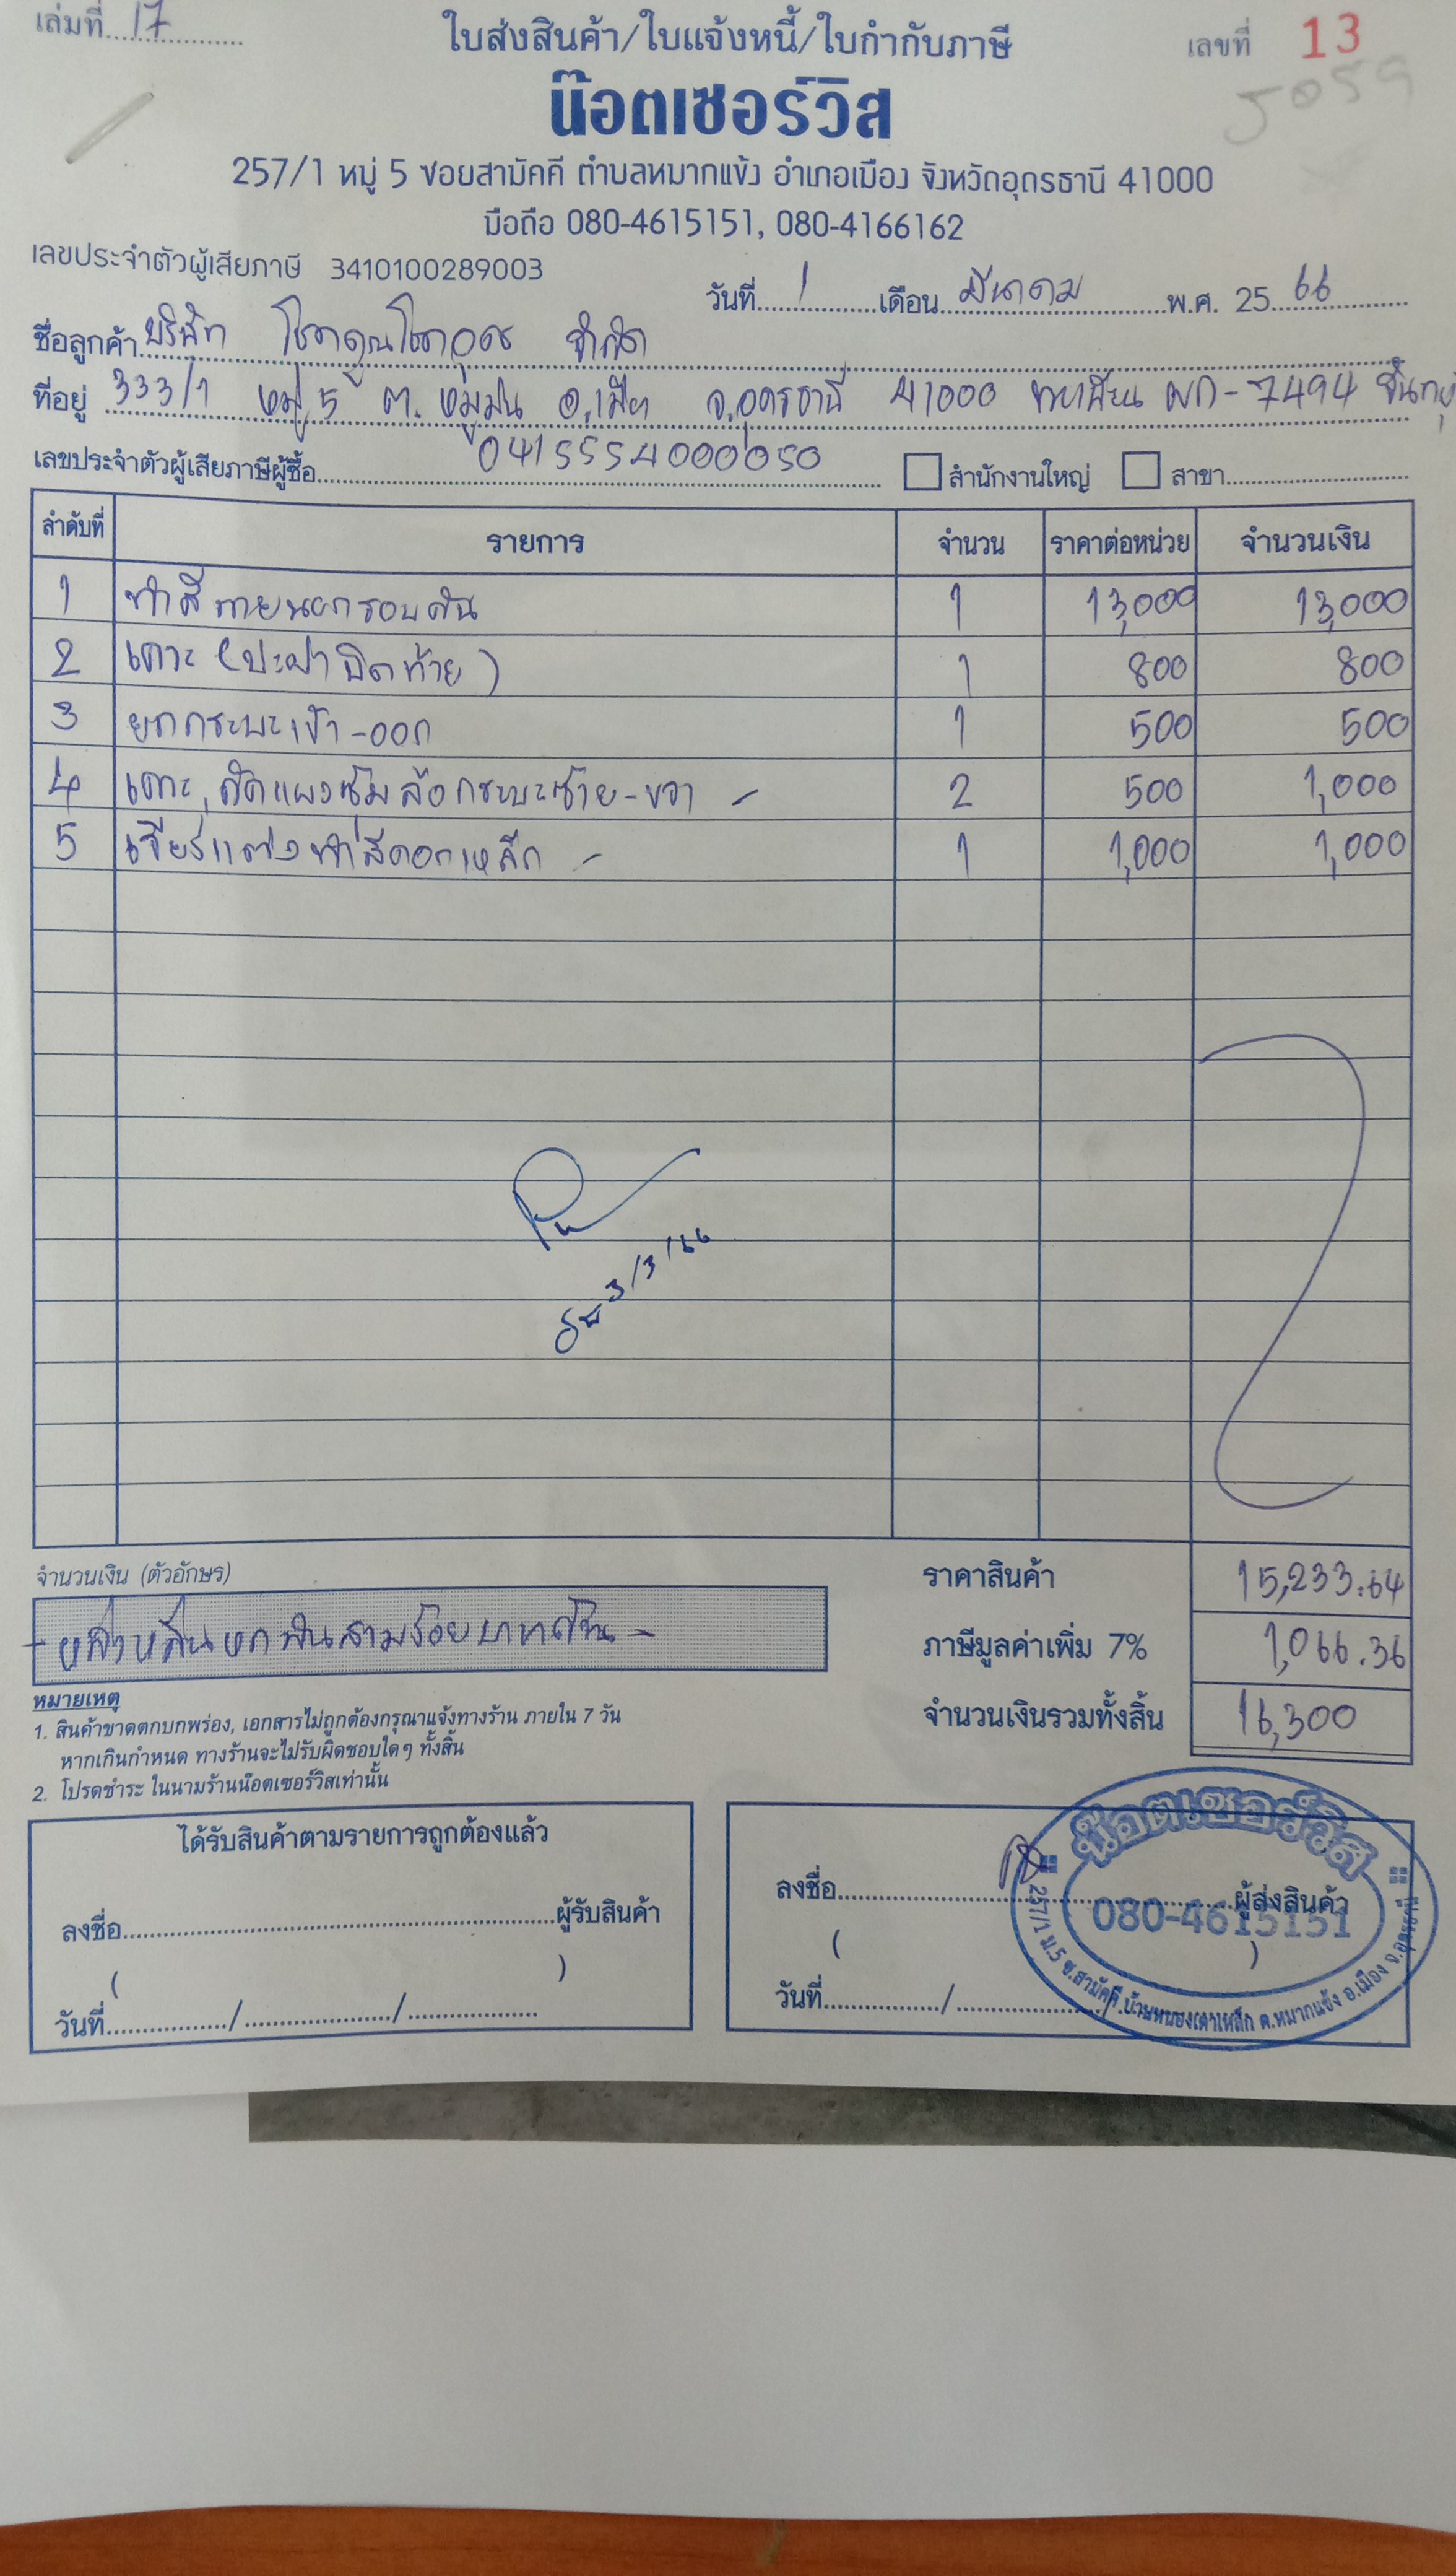 เล่มที่ 17
ใบส่งสินค้า/ใบแจ้งหนี้/ใบกำกับภาษี
เลขที่ 13
5059
น๊อตเซอร์วิส
257/1 หมู่ 5 ซอยสามัคคี ตำบลหมากแข้ง อำเภอเมือง จังหวัดอุดรธานี 41000
มือถือ 080-4615151, 080-4166162
เลขประจำตัวผู้เสียภาษี 3410100289003
วันที่ 1 เดือน มีนาคม พ.ศ. 25 66
ชื่อลูกค้า บริษัท จำกัด
ที่อยู่ 333/1 หมู่ 5 ต. หมูม่น อ.เมือง จ.อุดรธานี 41000 ทะเบียน ผก-7494
เลขประจำตัวผู้เสียภาษีผู้ซื้อ 0415554000050 สำนักงานใหญ่ สาขา
ลำดับที่ รายการ จำนวน ราคาต่อหน่วย จำนวนเงิน
1 ทำสีภายนอกรอบคัน 1 13,000 13,000
2 เคาะ (ปะฝาปิดท้าย) 1 800 800
3 ยกกระบะเข้า-ออก 1 500 500
4 เคาะ, ดัดแผงซุ้มล้อกระบะซ้าย-ขวา 2 500 1,000
5 เจียร์แต่งทำสีดอกเหล็ก 1 1,000 1,000
3/3/66
จำนวนเงิน (ตัวอักษร)
ราคาสินค้า 15,233.64
- หนึ่งหมื่นหกพันสามร้อยบาทถ้วน -
ภาษีมูลค่าเพิ่ม 7% 1,066.36
หมายเหตุ
จำนวนเงินรวมทั้งสิ้น 16,300
1. สินค้าขาดตกบกพร่อง, เอกสารไม่ถูกต้องกรุณาแจ้งทางร้าน ภายใน 7 วัน
หากเกินกำหนด ทางร้านจะไม่รับผิดชอบใดๆ ทั้งสิ้น
2. โปรดชำระ ในนามร้านน๊อตเซอร์วิสเท่านั้น
ได้รับสินค้าตามรายการถูกต้องแล้ว
ลงชื่อ ผู้รับสินค้า
( )
วันที่ / /
ลงชื่อ ผู้ส่งสินค้า
( )
วันที่ / /
น๊อตเซอร์วิส
080-4615151
257/1 ม.5 ซ.สามัคคี บ้านหนองเตาเหล็ก ต.หมากแข้ง อ.เมือง จ.อุดรธานี